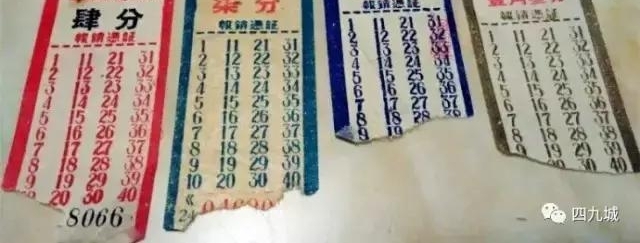 肆分
報銷憑証
1 11 21 31
2 12 22 32
3 13 23 33
4 14 24 34
5 15 25 35
6 16 26 36
7 17 27 37
8 18 28 38
9 19 29 39
10 20 30 40
8066
柒分
報銷憑証
1 11 21 31
2 12 22 32
3 13 23 33
4 14 24 34
5 15 25 35
6 16 26 36
7 17 27 37
8 18 28 38
9 19 29 39
10 20 30 40
24
報銷憑証
1 11 21 31
2 12 22 32
3 13 23 33
4 14 24 34
5 15 25 35
6 16 26 36
17 27 37
28 38
報銷憑証
1 11 21 31
2 12 22 32
3 13 23 33
4 14 24 34
5 15 25 35
6 16 26 36
7 17 27 37
8 18 28 38
19 29 39
40
四九城